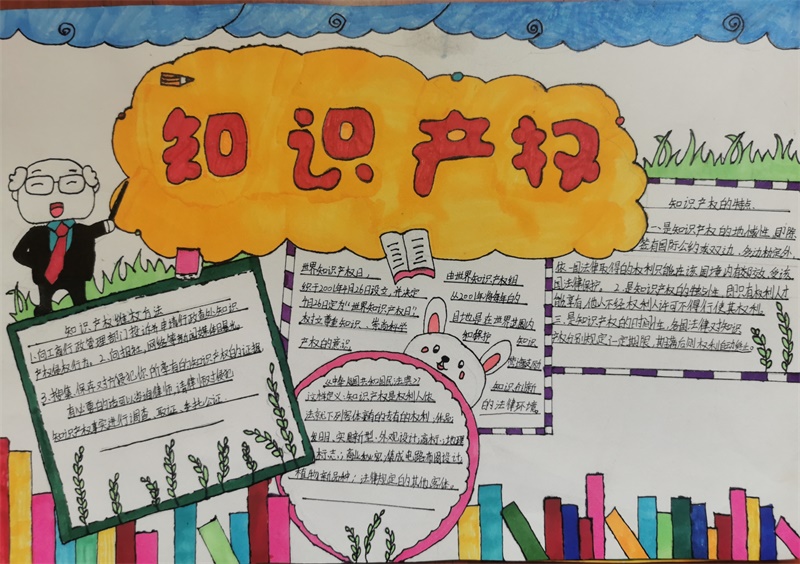 知识产权
知识产权维权方法
1.向工商行政管理部门投诉,申请行政查处知识
产权侵权行为。2.向报社,网络等新闻媒体曝光。
3.搜集、保存对方侵犯你的享有的知识产权的证据
有必要的话可以咨询律师,请律师对侵犯
知识产权事实进行调查、取证、委托公证
世界知识产权日,
织于2001年4月26日设立,并决定
4月26日定为"世界知识产权日?
树立尊重知识、崇尚科学
产权的意识
由世界知识产权组
从2001年起将每年的
目地也是在世界范围内
和保护
知识
知识创新
的法律环境
中华人民共和国民法总
法规定义,知识产权是权利人依
法就下列客体享有的专有的权利,作品,
发明、实用新型、外观设计;商标;地理
标志;商业秘密;集成电路布图设计
植物新品种;法律规定的其他客体。
知识产权的特点
一.是知识产权的地域性,即除
签有国际公约或双边、多边协定外
依一国法律取得的权利只能在该国境内有效,受该
国法律保护,2.是知识产权的独占性,即只有权利人才
能享有,他人不经权利人许可不得行使其权利。
三.是知识产权的时间性,各国法律对知识
产权分别规定了一定期限,期满后则权利自动终止。